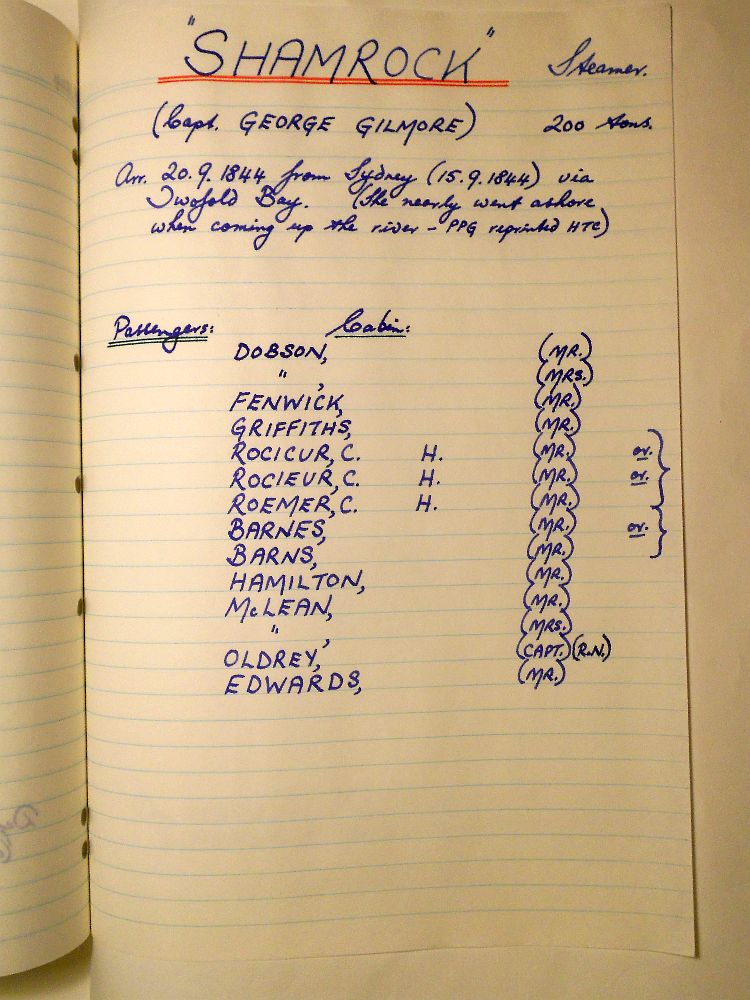 "SHAMROCK" Steamer.
(Capt. GEORGE GILMORE) 200 tons.
Arr. 20.9.1844 from Sydney (15.9.1844) via
Twofold Bay. (She nearly went ashore
when coming up the river - PPG reprinted HTC)
Passengers: Cabin:
DOBSON, (MR.)
" , (MRS.)
FENWICK, (MR.)
GRIFFITHS, (MR.)
ROCICUR, C. H. (MR.) or.
ROCIEUR, C. H. (MR.) or.
ROEMER, C. H. (MR.)
BARNES, (MR.) or.
BARNS, (MR.)
HAMILTON, (MR.)
McLEAN, (MR.)
" , (MRS.)
OLDREY, (CAPT.) (R.N.)
EDWARDS, (MR.)